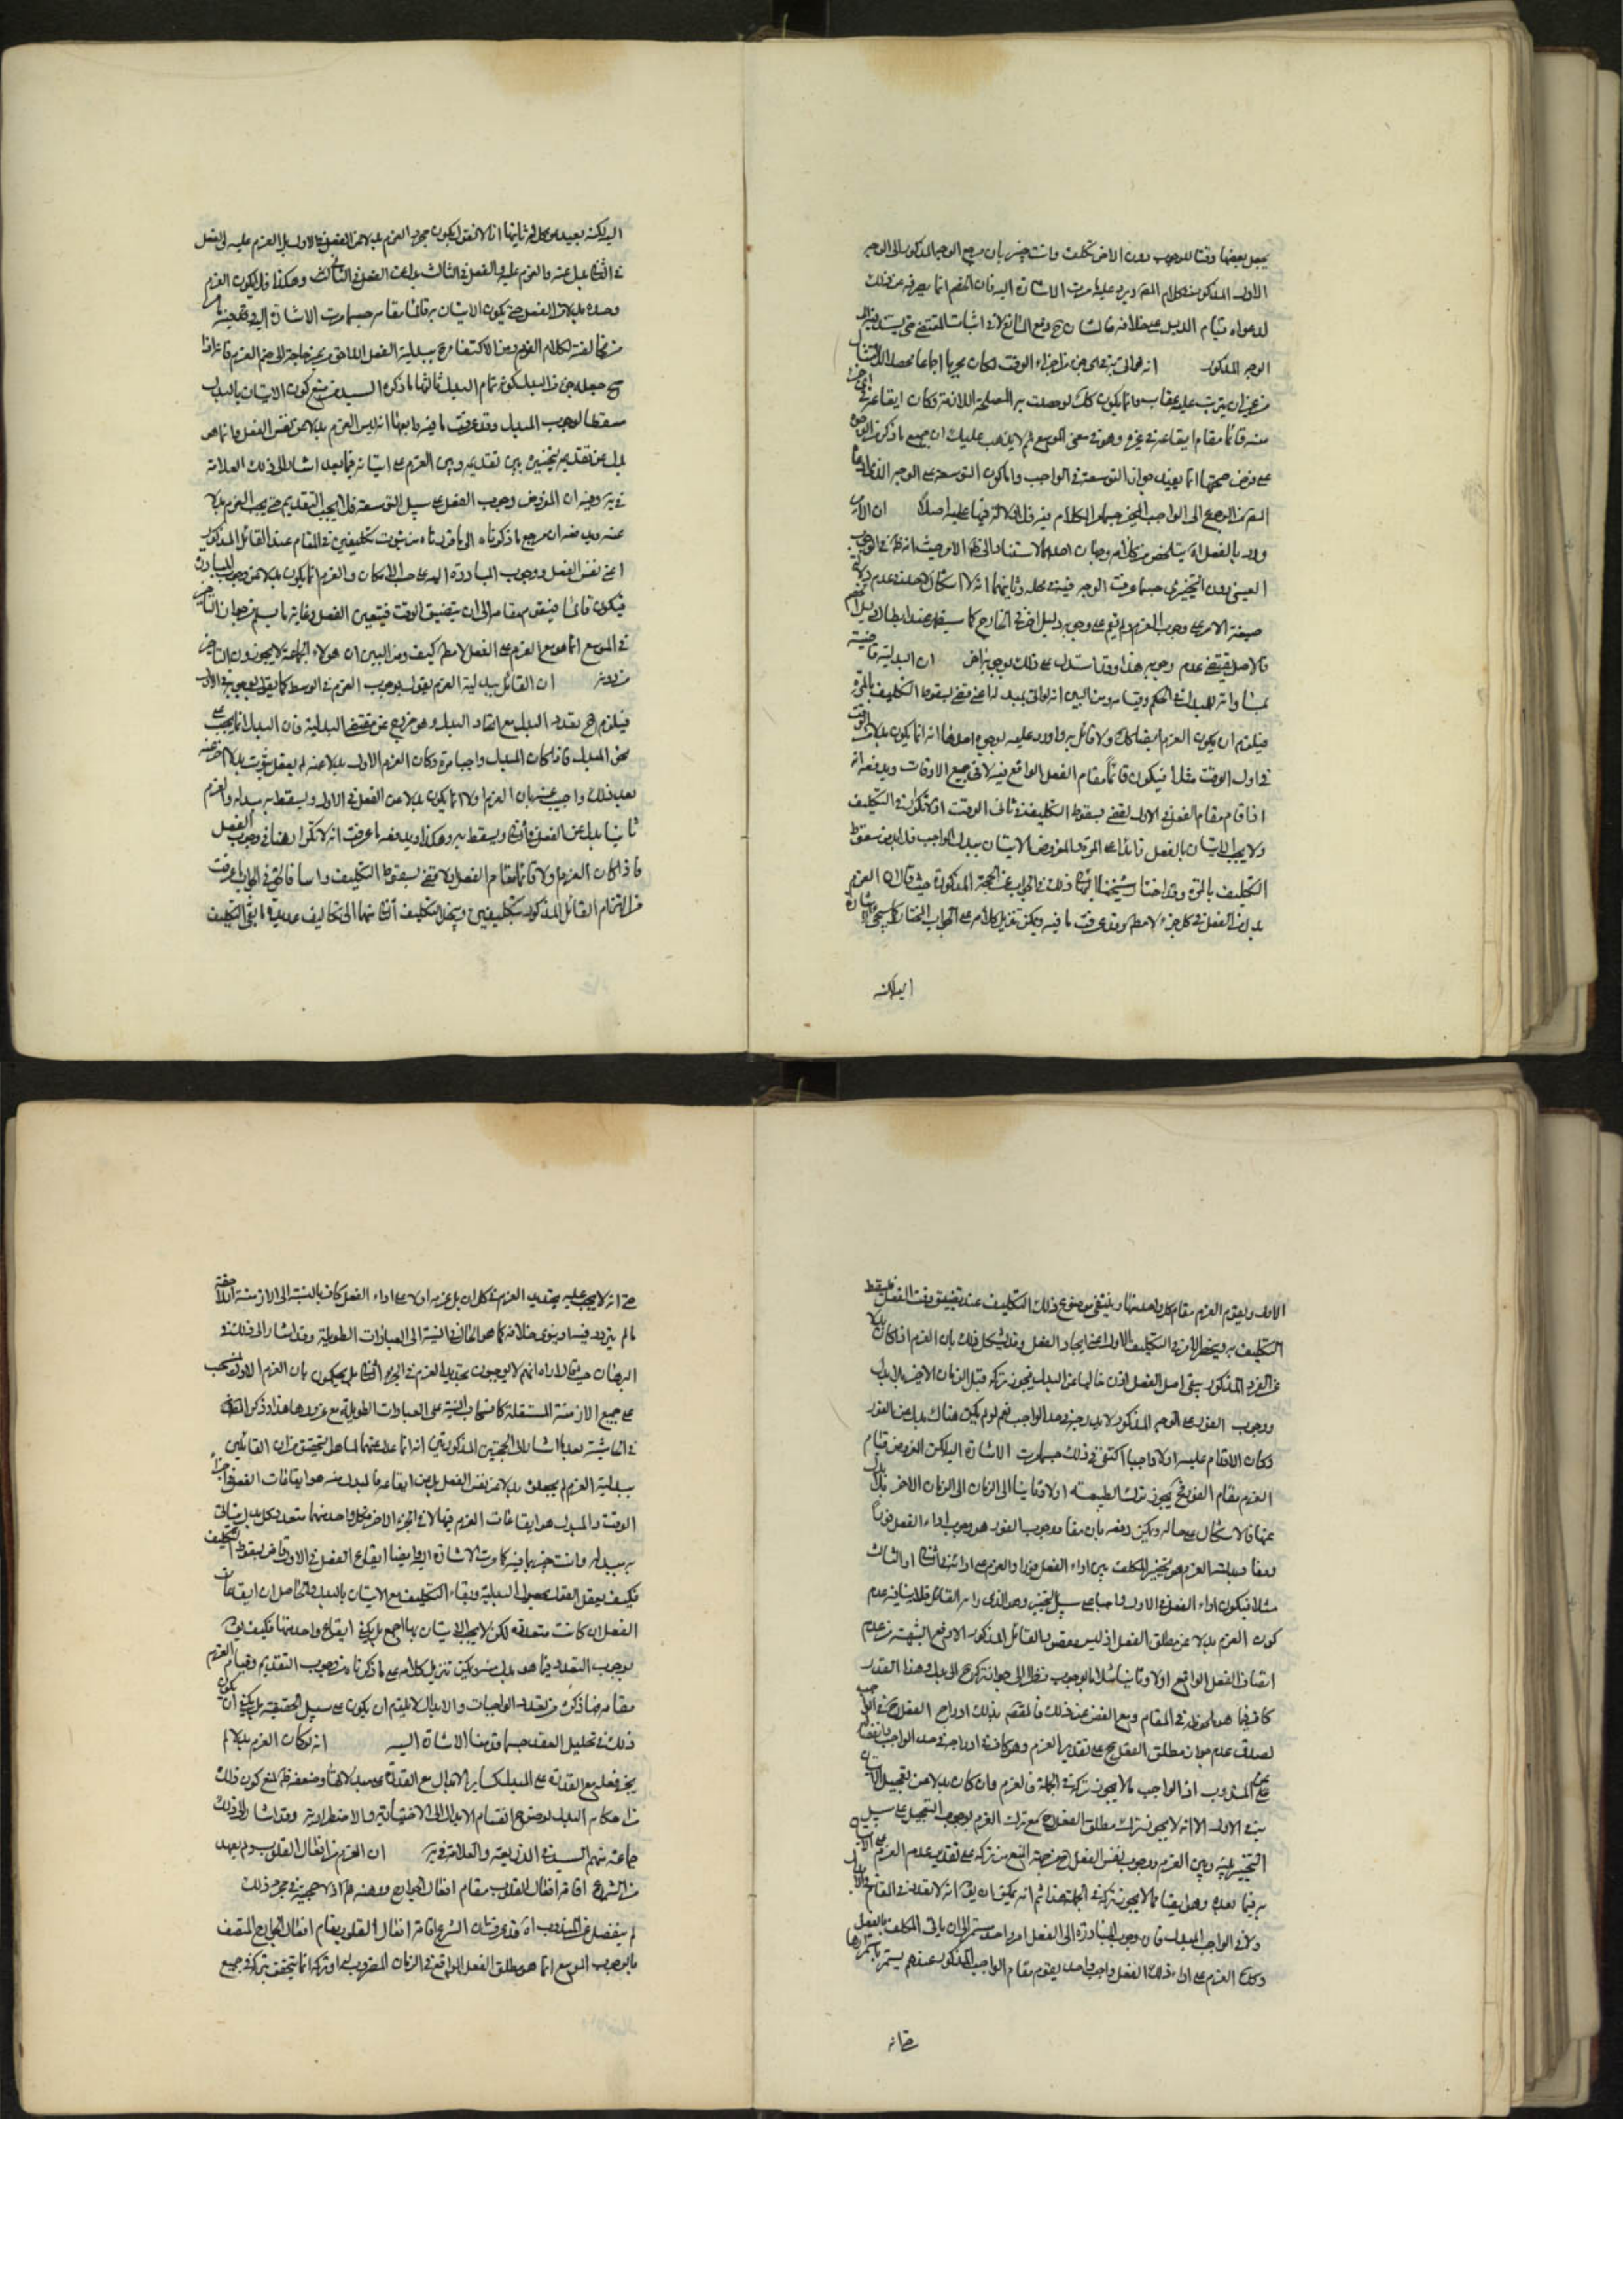 يجعل بعضها وقتا للوجوب دون الاخر تكلف وانت خبير بان مرجع الوجه المذكور الى الوجه
الاول المذكور في كلام المص ويرد عليه ما مرت الاشارة اليه فان الخصم انما يصرفه عن ذلك
لدعواه قيام الدليل على خلافه فالشان ح دفع المانع لا في اثبات المقتضى حتى يستند فيه الى
الوجه المذكور انه لو اتى به في اي جزء من اجزاء الوقت لكان مجزيا اجماعا محصلا للامتثال
من غير ان يترتب عليه عقاب وانما يكون كك لو حصلت به المصلحة اللازمة وكان ايقاعه في اي جزء
منه قائما مقام ايقاعه في غيره وهو في معنى الموسع ثم لا يذهب عليك ان جميع ما ذكر من الوجوه
على فرض صحتها انما يفيد جواز التوسعة في الواجب واما كون التوسعة على الوجه الذي ادعاه
المص من الرجوع الى الواجب المخير حسبما مر الكلام فيه فلا دلالة فيها عليه اصلا ان الامر
ورد بالفعل اه يتلخص من كلامه وجهان احدهما الاستناد الى ظ الامر حيث انه ظ في الوجوب
العيني دون التخييري حسبما عرفت الوجه فيه في محله وثانيهما انه لا اشكال لاحد في عدم دلالة
صيغة الامر على وجوب العزم ولم يقم على وجوبه دليل اخر في الخارج كما سيظهر عند ابطال دليل الخصم
فالاصل يقتضي عدم وجوبه هذا وقد استدل على ذلك بوجوه اخر ان البدلية قاضية
بمساواته للمبدل في الحكم وقيامه ومن البين انه لو اتى بمبدله اعني قضى بسقوط التكليف بالمرة
فيلزم ان يكون العزم ايضا كك ولا قائل به واورد عليه بوجوه احدها انه انما يكون بدلا عنه
في اول الوقت مثلا فيكون قائما مقام الفعل الواقع فيه لا في جميع الاوقات ويدفعه انه
اذا قام مقام الفعل في الاول لقضى بسقوط التكليف في ثاني الوقت اذ لا تكرار في التكليف
ولا يجب الاتيان بالفعل زائدا على المرة والمفروض الاتيان ببدل الواجب فلا بد من سقوط
التكليف بالمرة وقد اختار شيخنا البهائي ذلك في الجواب عن الحجة المذكورة حيث قال ان العزم
بدل من الفعل في كل جزء لا مط وقد عرفت ما فيه ويمكن تنزيل كلامه على الجواب المختار كما سيجيء الاشارة
اليه لكنه
اليه لكنه بعيد عن كلامه ثانيها انا لا نقول بكون مجرد العزم بدلا عن الفعل في الاول بل العزم عليه في الفعل
في الثاني بدل عنه والعزم عليه في الفعل في الثالث بدل عن الفعل في الثاني وهكذا فلا يكون العزم
وحده بدلا عن الفعل حتى يكون الاتيان به قائما مقامه حسبما مرت الاشارة اليه
من مخالفته لكلام القوم ومن الاكتفاء ح ببدلية الفعل اللاحق من غير حاجة الى ضم العزم فانه اذا
صح جعله جزء من البدل يكون تمام البدل ثالثها ما ذكره السيد من منع كون الاتيان بالبدل
مسقطا لوجوب المبدل وقد عرفت ما فيه رابعها انه ليس العزم بدلا عن نفس الفعل وانما هو
بدل عن تقديمه فيتخير بين تقديمه وبين العزم على اتيانه فيما بعد اشار الى ذلك العلامة
في يه وفيه ان المفروض وجوب الفعل على سبيل التوسعة فلا يجب التقديم حتى يجب العزم بدلا
عنه ويدفعه ان مرجع ما ذكرناه الى ما قررناه من ثبوت تكليفين في المقام عند القائل المذكور
اعني نفس الفعل ووجوب المبادرة اليه على حسب الامكان والعزم انما يكون بدلا عن وجوب المبادرة
فيكون قائما فيقوم مقامه الى ان يتضيق الوقت فيتعين الفعل وغاية ما يسلم من جواز التاخير
في الموسع انما هو مع العزم على الفعل لا مط كيف ومن البين ان هؤلاء الجماعة لا يجوزون التاخير
من دونه ان القائل ببدلية العزم يقول بوجوب العزم في الوسط كما يقول بوجوبه في الاول
فيلزم ح تعدد البدل مع اتحاد المبدل وهو خروج عن مقتضى البدلية فان البدل انما يجب على
نحو المبدل فاذا كان المبدل واجبا مرة وكان العزم الاول بدلا عنه لم يعقل ثبوت بدل اخر عنه
بعد ذلك واجيب عنه بان العزم اولا انما يكون بدلا عن الفعل في الاول ويسقط به مبدله والعزم
ثانيا بدل عن الفعل في الثاني ويسقط به وهكذا ويدفعه ما عرفت انه لا تكرار هنا في وجوب الفعل
فاذا كان العزم اولا قائما مقام الفعل اولا قضى بسقوط التكليف راسا فالحق في الجواب ما عرفت
من التزام القائل المذكور بتكليفين وينحل التكليف الثاني منهما الى تكاليف عديدة ابقى التكليف
الاول ويقوم العزم مقام كل واحد منها وينتفي موضوع ذلك التكليف عند تضيق وقت الفعل فيسقط
التكليف به وينحصر الامر في التكليف الاول اعني ايجاد الفعل وقد يشكل ذلك بان العزم اذا كان بدلا
عن الفور المذكور بقي اصل الفعل اذن خاليا عن البدل فيجوز تركه قبل الزمان الاخير بلا بدل
ووجوب الفور على الوجه المذكور لا يدرجه في حد الواجب نعم لو لم يكن هناك بدل عن الفور
وكان الاقدام عليه اولا واجبا اكتفى في ذلك حسبما مرت الاشارة اليه لكن المفروض قيام
العزم مقام الفور فح يجوز ترك الطبيعة اولا وثانيا الى الزمان الى الزمان الاخر بلا بدل
عنها فالاشكال على حاله ويمكن دفعه بان مفاد وجوب الفور هو وجوب اداء الفعل فورا
ومفاد بدلية العزم هو تخيير المكلف بين اداء الفعل فورا والعزم على ادائه في الثاني او الثالث
مثلا فيكون اداء الفعل في الاول واجبا على سبيل التخيير وهو الذي رامه القائل فلا ينافيه عدم
كون العزم بدلا عن مطلق الفعل اذ ليس مقصود القائل المذكور الا دفع الشبهة من عدم
اتصاف الفعل الواقع اولا وثانيا مثلا بالوجوب نظرا الى جواز تركه لا الى بدل وهذا القدر
كاف فيما هو ملحوظه في المقام ومع الغض عن ذلك فالمقصود بذلك ادراج الفعل ح في الواجب
لصدق عدم جواز مطلق الفعل ح على تقدير العزم وهو كاف في ادراجه في حد الواجب وانفصاله
عن المندوب اذ الواجب ما لا يجوز تركه في الجملة فالعزم وان كان بدلا عن تعجيل الاتيان
به في الاول الا انه لا يجوز ترك مطلق الفعل ح مع ترك العزم لوجوب التعجيل على سبيل
التخيير بينه وبين العزم ووجوب نفس الفعل ح من جهة المنع من تركه على تقدير عدم العزم على الاتيان
به فيما بعد وهو ايضا مما لا يجوز تركه في الجملة هذا ثم انه يمكن ان يقال انه لا تعدد في المقام في البدل
ولا في الواجب المبدل فان وجوب المبادرة الى الفعل امر واحد مستمر الى ان ياتي المكلف بالفعل
وكذا العزم على اداء ذلك الفعل واجب واحد يقوم مقام الواجب المذكور عندهم يستمر باستمرارها
حتى انه
حتى انه لا يجب عليه تجديد العزم في كل ان بل عزمه اولا على اداء الفعل كاف بالنسبة الى الازمنة اللاحقة
ما لم يتردد فيه او ينوي خلافه كما هو الحال في النية بالنسبة الى العبادات الطويلة وقد اشار الى ذلك في
البرهان حيث قال اراه انهم لا يوجبون تجديد العزم في الجزء الثاني بل يحكمون بان العزم الاول ينسحب
على جميع الازمنة المستقبلة كانسحاب النية على العبادات الطويلة مع عزوبها هذا وذكر المدقق
في الحاشية بعد ما اشار الى الحجتين المذكورتين انه انما عدل عنهما لما هو التحقيق من ان القائلين
ببدلية العزم لم يجعلوه بدلا عن نفس الفعل بل من ايقاعه فالمبدل منه هو ايقاعات الفعل في اجزاء
الوقت والبدل هو ايقاعات العزم فيها لا في الجزء الاخير فكل واحد منهما متعدد وكل بدل يتادى
به مبدله وانت خبير بما فيه كما مرت الاشارة اليه وايضا ايقاع الفعل في الاول قاض بسقوط التكليف
فكيف يعقل القول بحصول البدلية وبقاء التكليف مع الاتيان بالبدل والحاصل ان ايقاعات
الفعل ان كانت متعددة لكن لا يجب الاتيان بها اجمع بل يكفي ايقاع واحد منها فكيف يق
بوجوب المتعدد فيما هو بدل منه ويمكن تنزيل كلامه على ما ذكرناه من وجوب التقديم وقيام العزم
مقامه فما ذكره من تعدد الواجبات والابدال لا يلزم ان يكون على سبيل الحقيقة بل يكفي ان يكون
ذلك في تحليل العقد حسبما قدمنا الاشارة اليه انه لو كان العزم بدلا لم
يجز فعله مع القدرة على المبدل كسائر الابدال مع القدرة على مبدلاتها وضعفه ظ لمنع كون ذلك
من احكام البدل لوضوح انقسام الابدال الى الاختيارية والاضطرارية وقد اشار الى ذلك
جماعة منهم السيد في الذريعة والعلامة في يه ان العزم من افعال القلوب ولم يعهد
من الشرع اقامة افعال القلوب مقام افعال الجوارح ووهنه ظ اذ لا حجية في مجرد ذلك
لم ينفصل عن المندوب اه قد عرفت ان الشرع اقامة افعال القلوب مقام افعال الجوارح المتصف
بالوجوب الموسع انما هو مطلق الفعل الواقع في الزمان المضروب له وتركه انما يتحقق بتركه في جميع